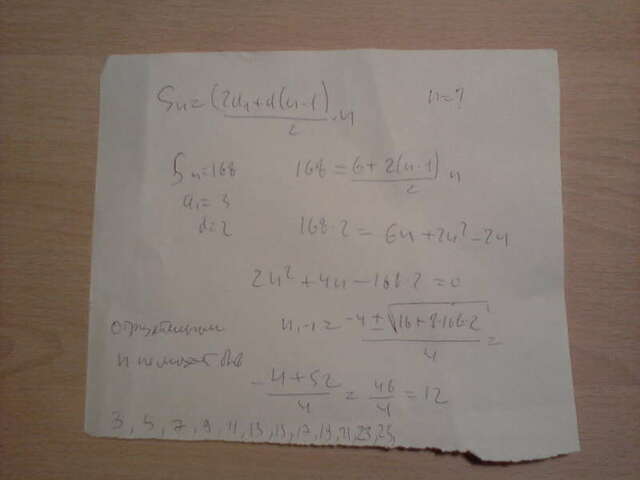 Sn = (2a₁ + d(n-1))/2 · n n = ?
Sn = 168 168 = (6 + 2(n-1))/2 n
a₁ = 3
d = 2 168·2 = 6n + 2n² - 2n
2n² + 4n - 168·2 = 0
отрицательным n₁,₂ = (-4 ± √(16 + 8·168·2))/4 =
n не может быть
(-4 + 52)/4 = 48/4 = 12
3, 5, 7, 9, 11, 13, 15, 17, 19, 21, 23, 25,